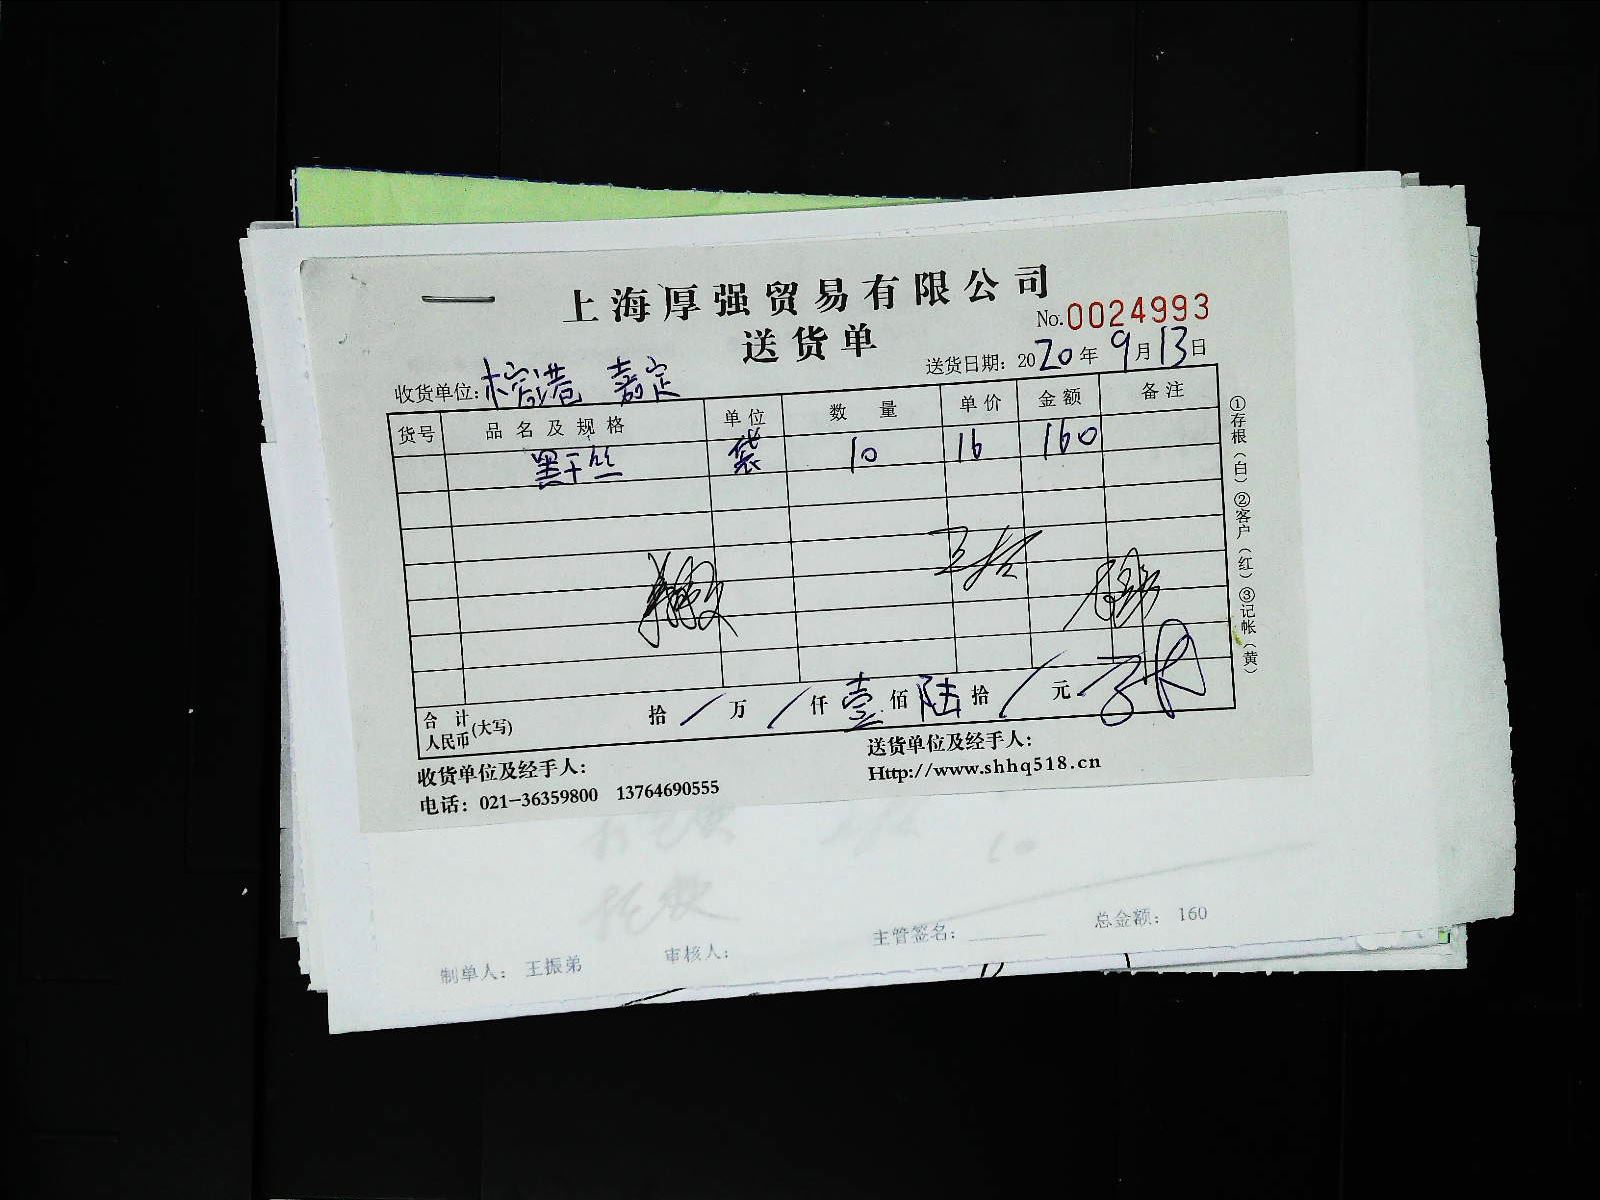 上海厚强贸易有限公司
No.0024993
送货单
送货日期：2020年9月13日
收货单位：榕港 嘉定
货号 品名及规格 单位 数量 单价 金额 备注
黑干丝 袋 10 16 160
合计人民币(大写) 拾/万/仟壹佰陆拾/元
收货单位及经手人：
送货单位及经手人：
电话：021-36359800 13764690555
Http://www.shhq518.cn
①存根(白)②客户(红)③记帐(黄)
制单人： 王振弟 审核人： 主管签名： 总金额： 160